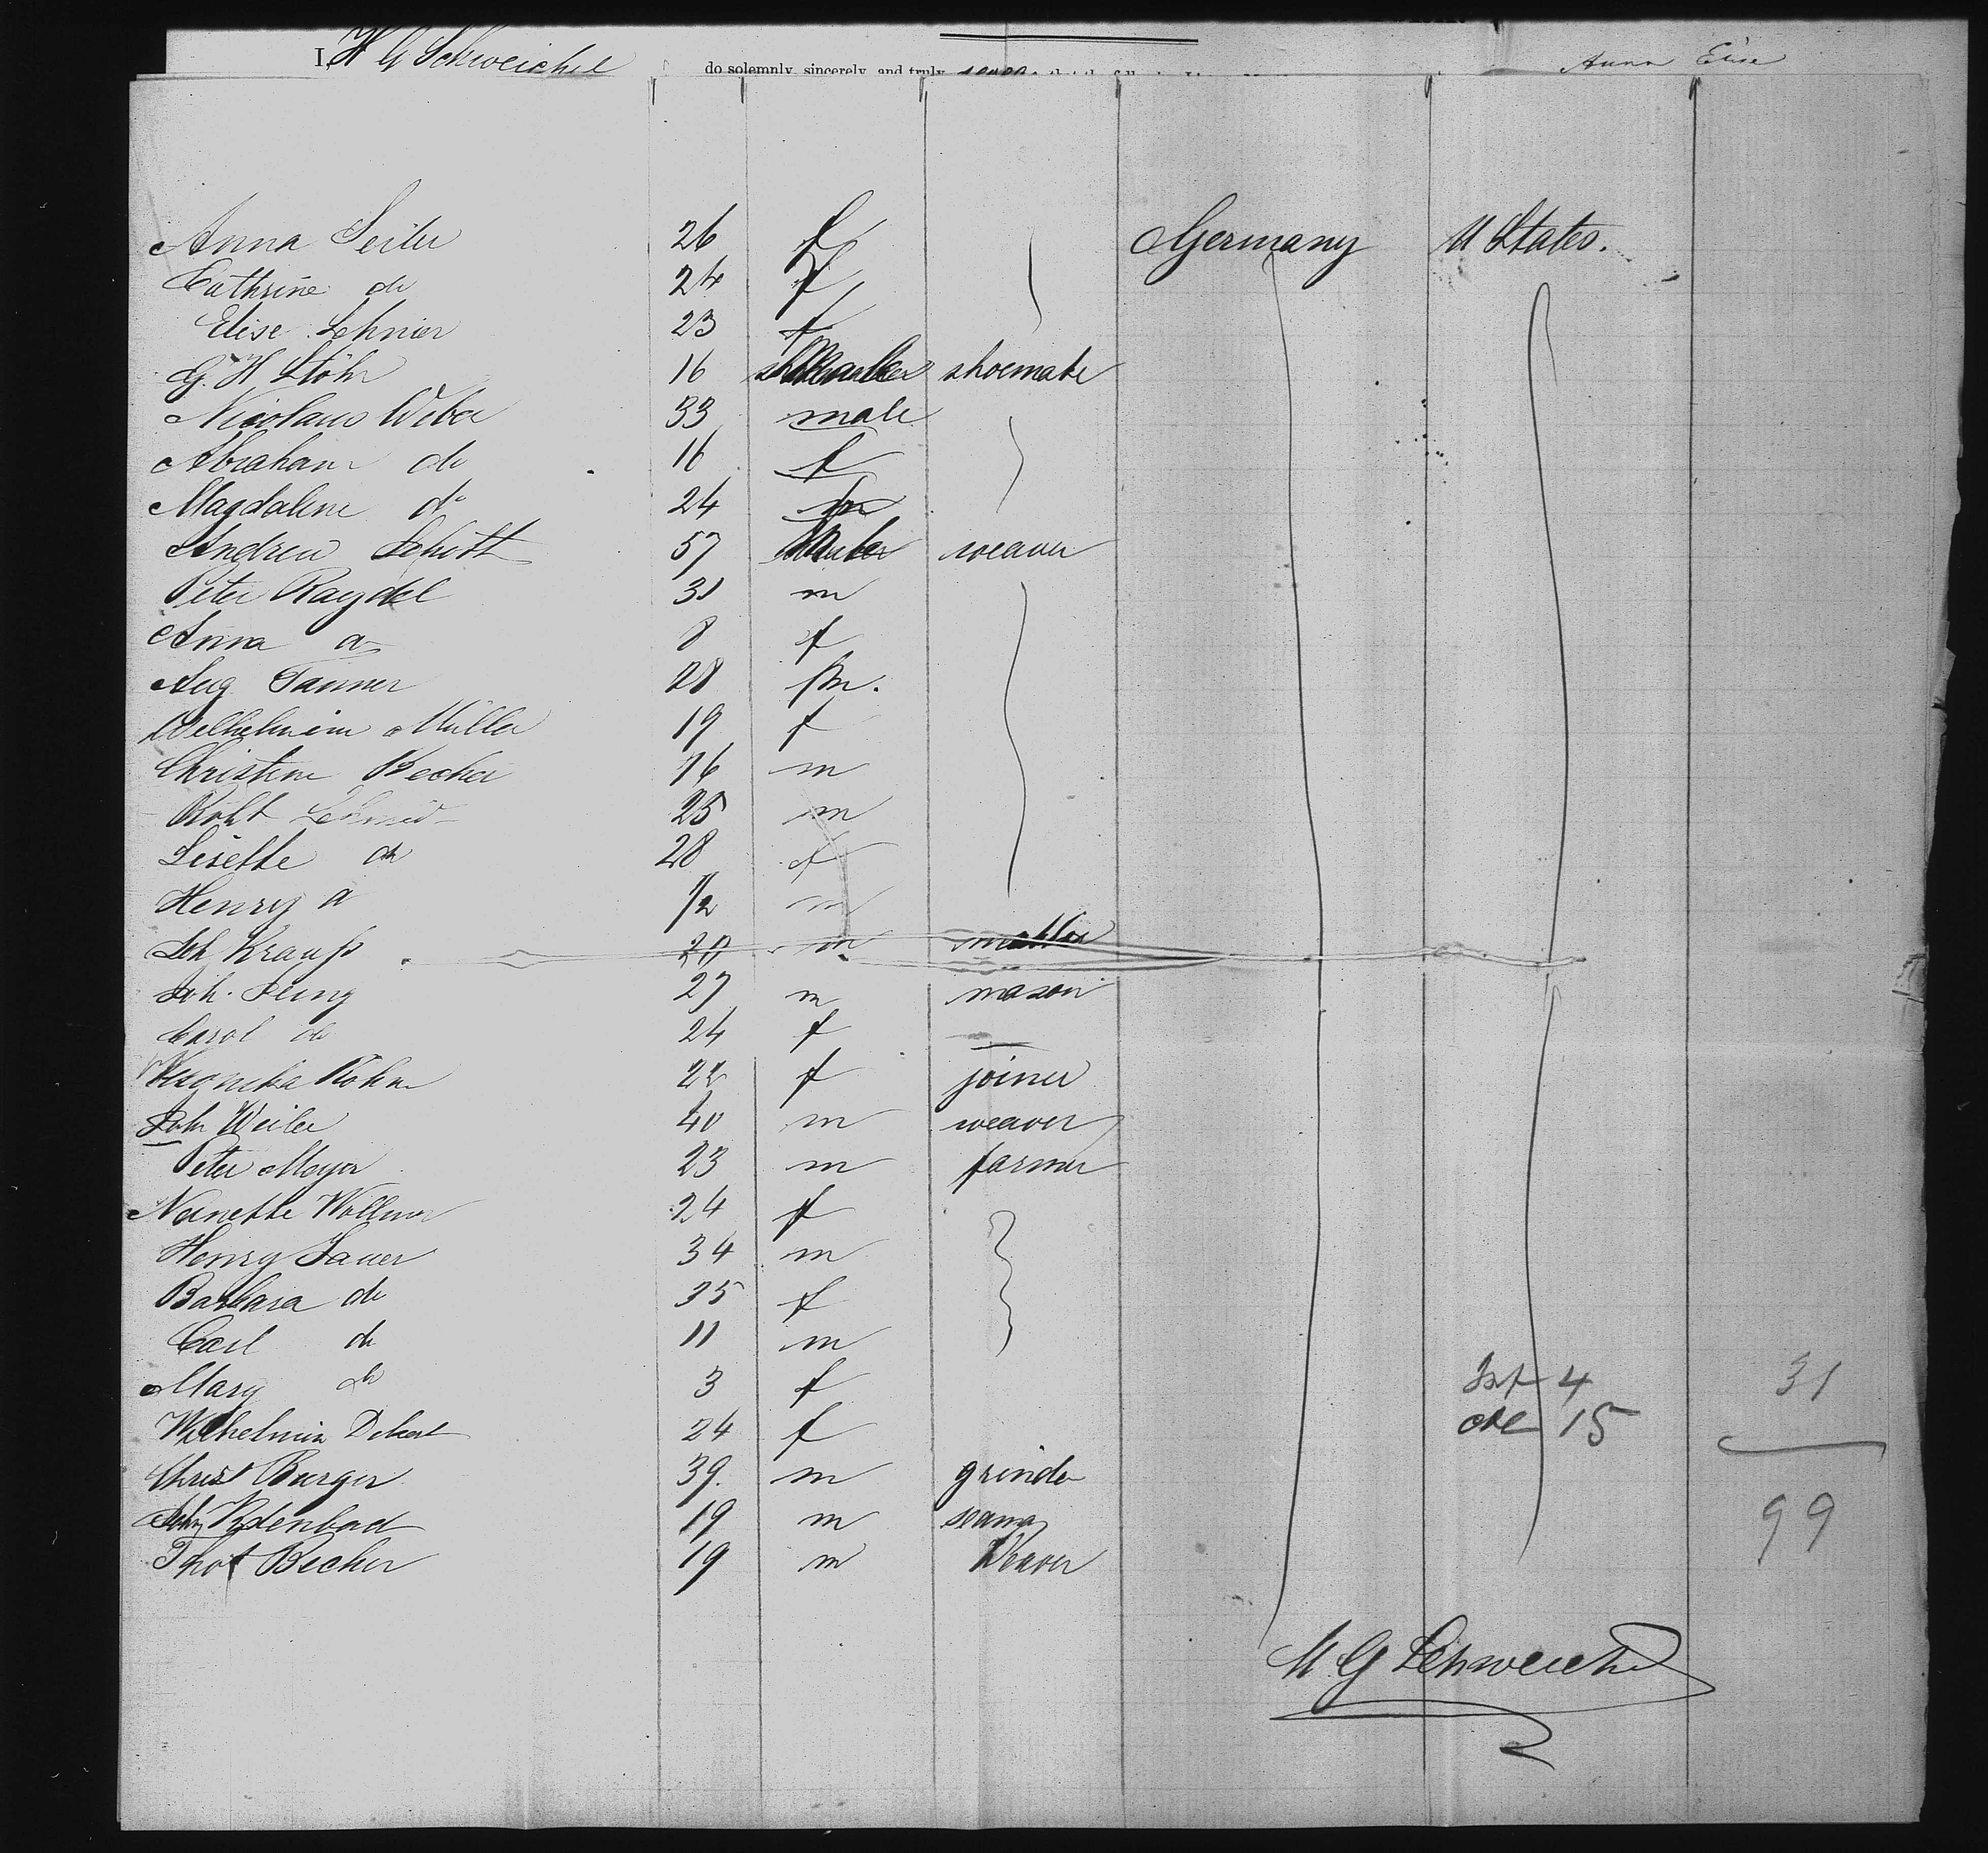 I, H G Schweichel do solemnly, sincerely, and truly Anna Elise
Anna Seiler 26 f Germany U States.
Cathrine do 24 f
Elise Lehnier 23 f
G. H Stöhr 16 shoemake
Nicolaus Weber 33 male
Abraham do 16 f
Magdalene do 24 m
Andreu Schott 57 weaver
Peter Raydel 31 m
Anna 8 f
Aug Tanner 28 m.
Wilhelmine Müller 19 f
Christine Becker 16 m
Robt Schmid 25 m
Lisette do 28 f
Henry 1/2 m
Joh Krauss 20 m
Joh. Pling 27 m mason
Carol do 24 f —
Veronika Röhm 22 f joiner
Joh Weiler 40 m weaver
Peter Meyer 23 m farmer
Nanette Wollmer 24 f
Henry Sauer 34 m
Barbara do 35 f
Carl do 11 m
Mary do 3 f Inf 4 31
Wilhelmin Dekert 24 f 15
Christ Burger 39. m grinder
Rdenbad 19 m seama 99
Becker 19 m Weaver
H. G Schweichel